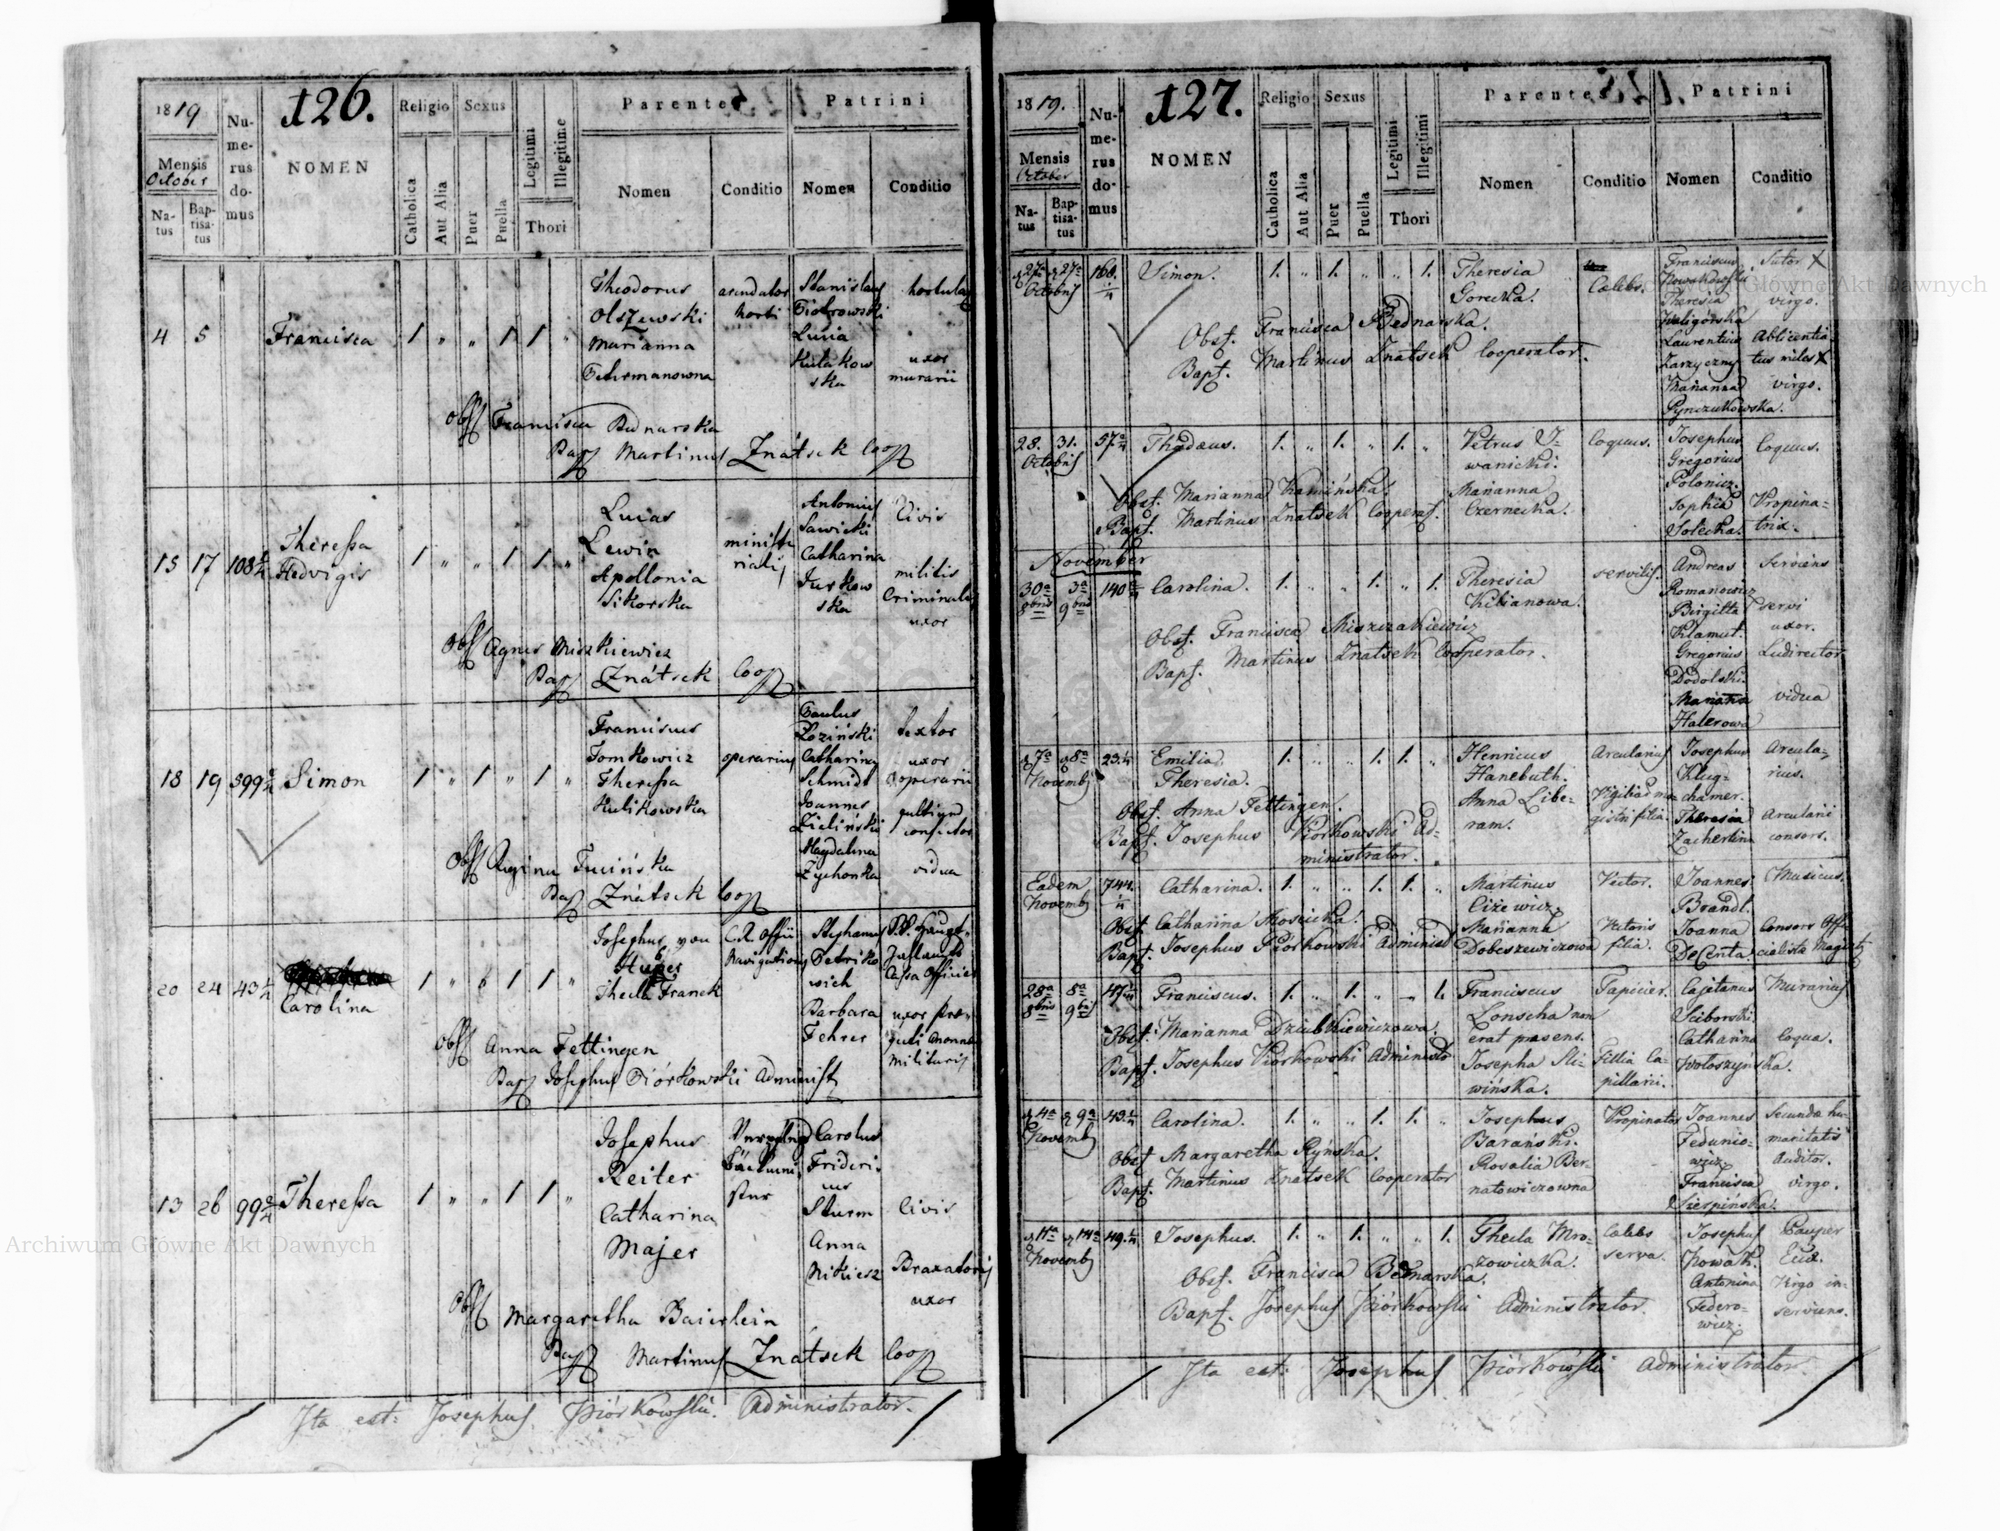 126.
1819
Mensis
October
Na-
tus
Bap-
tisa-
tus
Nu-
me-
rus
do-
mus
NOMEN
Religio
Catholica
Aut Alia
Sexus
Puer
Puella
Legitimi
Illegitime
Thori
Parentes
Nomen
Conditio
Patrini
Nomen
Conditio
4 5 Francisca 1 " " 1 1 "
Theodorus
Olszewski
Marianna
arendator
horti
Stanislaus
Piotrowski
Lucia
Kulakow
ska
hortulag
uxor
murarii
Obst Francisca Bednarska
Bap Martinus Znátsek Coop
15 17 108 Theressa
Hedvigis
1 " " 1 1 "
Lucas
Lewin
Apollonia
Sikorska
ministe
rialis
Antonius
Sawicki
Catharina
Jurkow
ska
Civis
militis
Criminalis
uxor
Obst Agnes Miszkiewicz
Bap Znátsek Coop
18 19 599 Simon 1 " 1 " 1 "
Franciscus
Tomkowicz
Theressa
Kulikowska
operarius
Paulus
Łoziński
Catharina
Schmidt
Joannes
Zieliński
Magdalena
Zychonka
textor
uxor
operarii
vidua
Obst Regina Tucińska
Bap Znátsek Coop
20 24 43 Carolina 1 " " 1 1 "
Josephus von
Huber
Thecla Franck
Navigationis
Stephanus
Petrko
wich
Barbara
Fehrer
uxor
militaris
Obst Anna Fettingen
Bap Josephus Piórkowski Administ
13 26 99 Theressa 1 " " 1 1 "
Josephus
Reiter
Catharina
Majer
Carolus
Frideri-
cus
Sturm
Anna
Nikiesz
Civis
Braxatoris
uxor
Obst Margaretha Baierlein
Bap Martinus Znátsek Coop
Ita est: Josephus Piórkowski Administrator.
127.
1819.
Mensis
October
Na-
tus
Bap-
tisa-
tus
Nu-
me-
rus
do-
mus
NOMEN
Religio
Catholica
Aut Alia
Sexus
Puer
Puella
Legitimi
Illegitimi
Thori
Parentes
Nomen
Conditio
Patrini
Nomen
Conditio
27a 27a
Octobris
168. Simon. 1. " 1. " " 1.
Theresia
Gorecka.
Caelebs.
Franciscus
Nowakowski
Theresia
Waligórska
Laurentius
Zarzyczny
Marianna
Pynczukowska.
Sutor X
virgo.
Ablicentia
tus miles X
virgo.
Obst. Francisca Bednarska.
Bapt. Martinus Znatsek Cooperator.
28. 31.
Octobris
57 Thadaeus. 1. " 1. " 1. "
Petrus I-
wanicki.
Marianna
Czernecka.
Coquus.
Josephus
Gregorius
Polonicz.
Sophia
Solecka.
Coquus.
Propina-
trix.
Obst. Marianna Kamińska.
Bapt. Martinus Znatsek Cooperat.
November
30a 3a
8bris 9bris
140 Carolina. 1. " " 1. " 1.
Theresia
Kilianowa.
servilis.
Andreas
Romanowicz
Birgitta
Klamut.
Gregorius
Dodolski
Mariana
Halerowa
Serviens
servi
uxor.
Ludirector
vidua
Obst. Francisca Miszczakiewicz
Bapt. Martinus Znatsek Cooperator.
7a 8a
Novemb
23. Emilia
Theresia.
1. " " 1. 1. "
Henricus
Hanebuth.
Anna Libe-
ram.
Arcularius
Josephus
Klug-
chamer.
Theresia
Zachertin
Arcula-
rius.
Arcularii
consors.
Obst. Anna Fettingen.
Bapt. Josephus Piórkowski Ad-
ministrator.
Eadem
Novemb
744. Catharina. 1. " " 1. 1. "
Martinus
Ciżewicz.
Marianna
Dobeszewiczowa
Victor.
filia.
Joannes
Brandl.
Joanna
DeCenta
Musicus.
Consors Offi-
cialistæ Magist
Obst. Catharina Mościcka.
Bapt. Josephus Piórkowski Administ
28a 8a
8bris 9bris
47 Franciscus. 1. " 1. " " 1.
Franciscus
Lonscha non
erat praesens.
Josepha Sli-
wińska.
Tapicier.
Fillia Ca-
pillarii.
Cajetanus
Sciborski
Catharina
Wołoszyńska.
Murarius
Coqua.
Obst. Marianna Dziubkiewiczowa.
Bapt. Josephus Piórkowski Administ
4a 9a
Novemb
43. Carolina. 1. " " 1. 1. "
Josephus
Barański.
Rosalia Ber-
natowiczowna
Propinator
Joannes
Fedunio-
wicz
Francisca
Sierpińska.
Secundæ hu-
manitatis
Auditor.
virgo.
Obst Margaretha Ryńska.
Bapt. Martinus Znatsek Cooperator
11a 14a
Novemb
49. Josephus. 1. " 1. " " 1.
Thecla Mro-
zowiczka.
Caelebs
serva.
Josephus
Nowak.
Antonina
Federo-
wicz.
Pauper
Virgo in-
serviens.
Obst. Francisca Bednarska.
Bapt. Josephus Piórkowski Administrator.
Ita est: Josephus Piórkowski Administrator.
Archiwum Główne Akt Dawnych
Archiwum Główne Akt Dawnych